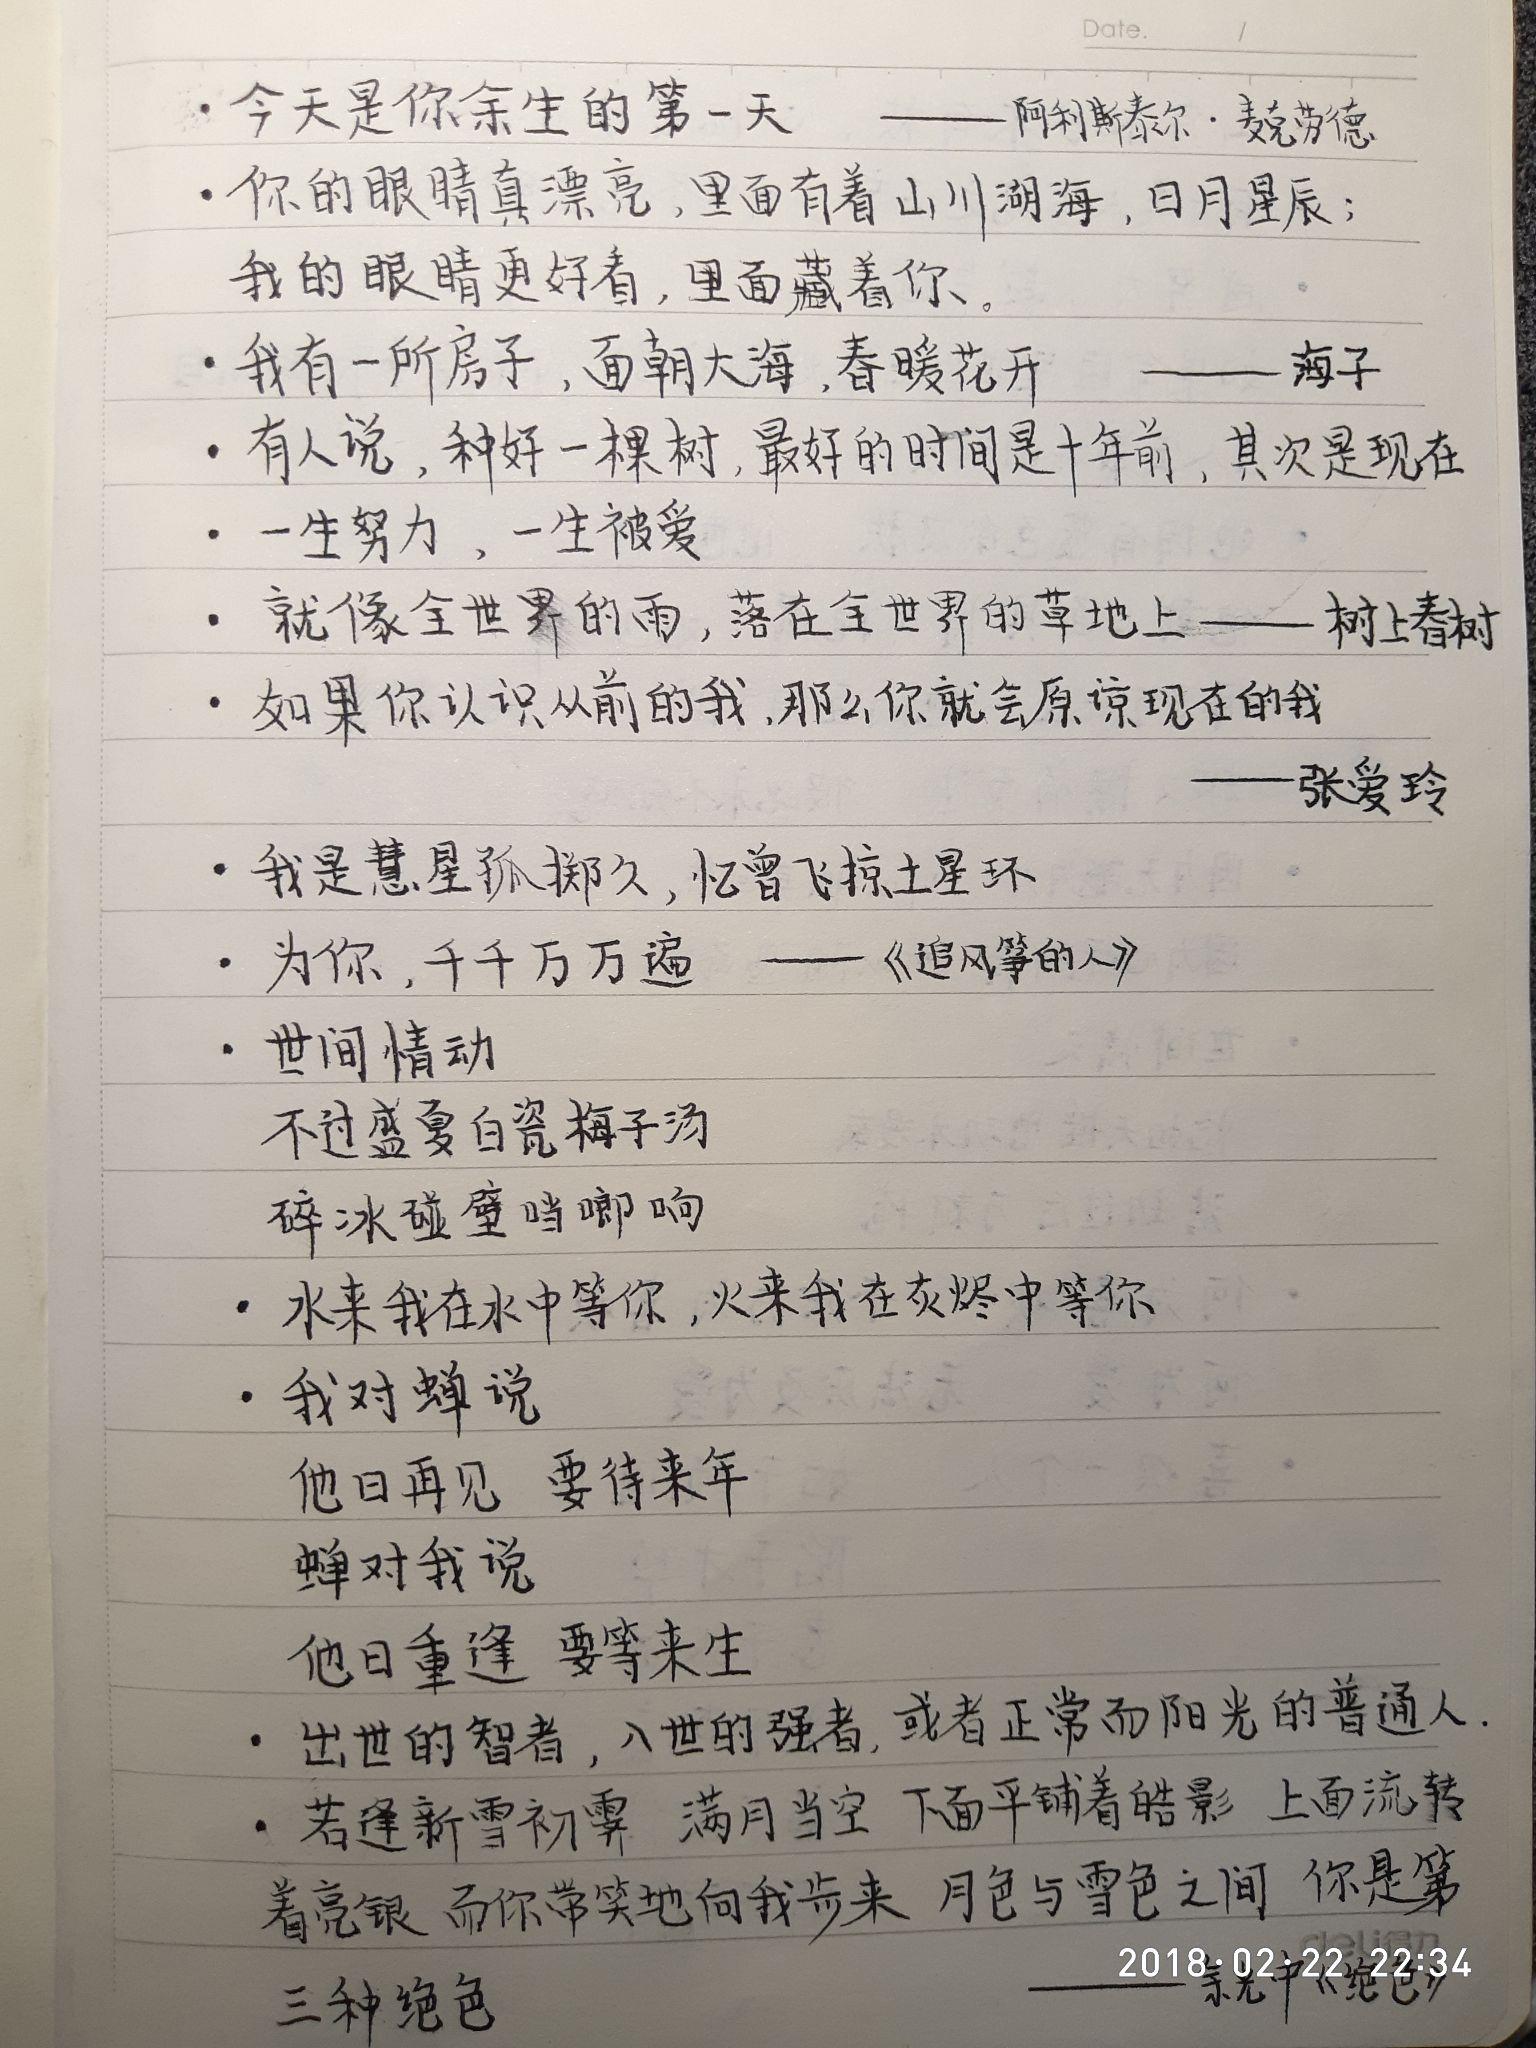 Date. /
· 今天是你余生的第一天 ——阿利斯泰尔·麦克劳德
· 你的眼睛真漂亮，里面有着山川湖海，日月星辰；
我的眼睛更好看，里面藏着你。
· 我有一所房子，面朝大海，春暖花开 ——海子
· 有人说，种好一棵树，最好的时间是十年前，其次是现在
· 一生努力，一生被爱
· 就像全世界的雨，落在全世界的草地上——树上春树
· 如果你认识从前的我，那么你就会原谅现在的我
——张爱玲
· 我是慧星孤掷久，忆曾飞掠土星环
· 为你，千千万万遍 ——《追风筝的人》
· 世间情动
不过盛夏白瓷梅子汤
碎冰碰壁当啷响
· 水来我在水中等你，火来我在灰烬中等你
· 我对蝉说
他日再见 要待来年
蝉对我说
他日重逢 要等来生
· 出世的智者，入世的强者，或者正常而阳光的普通人.
· 若逢新雪初霁 满月当空 下面平铺着皓影 上面流转
着亮银 而你带笑地向我步来 月色与雪色之间 你是第
deli得力
2018.02.22 22:34
三种绝色 ——余光中《绝色》